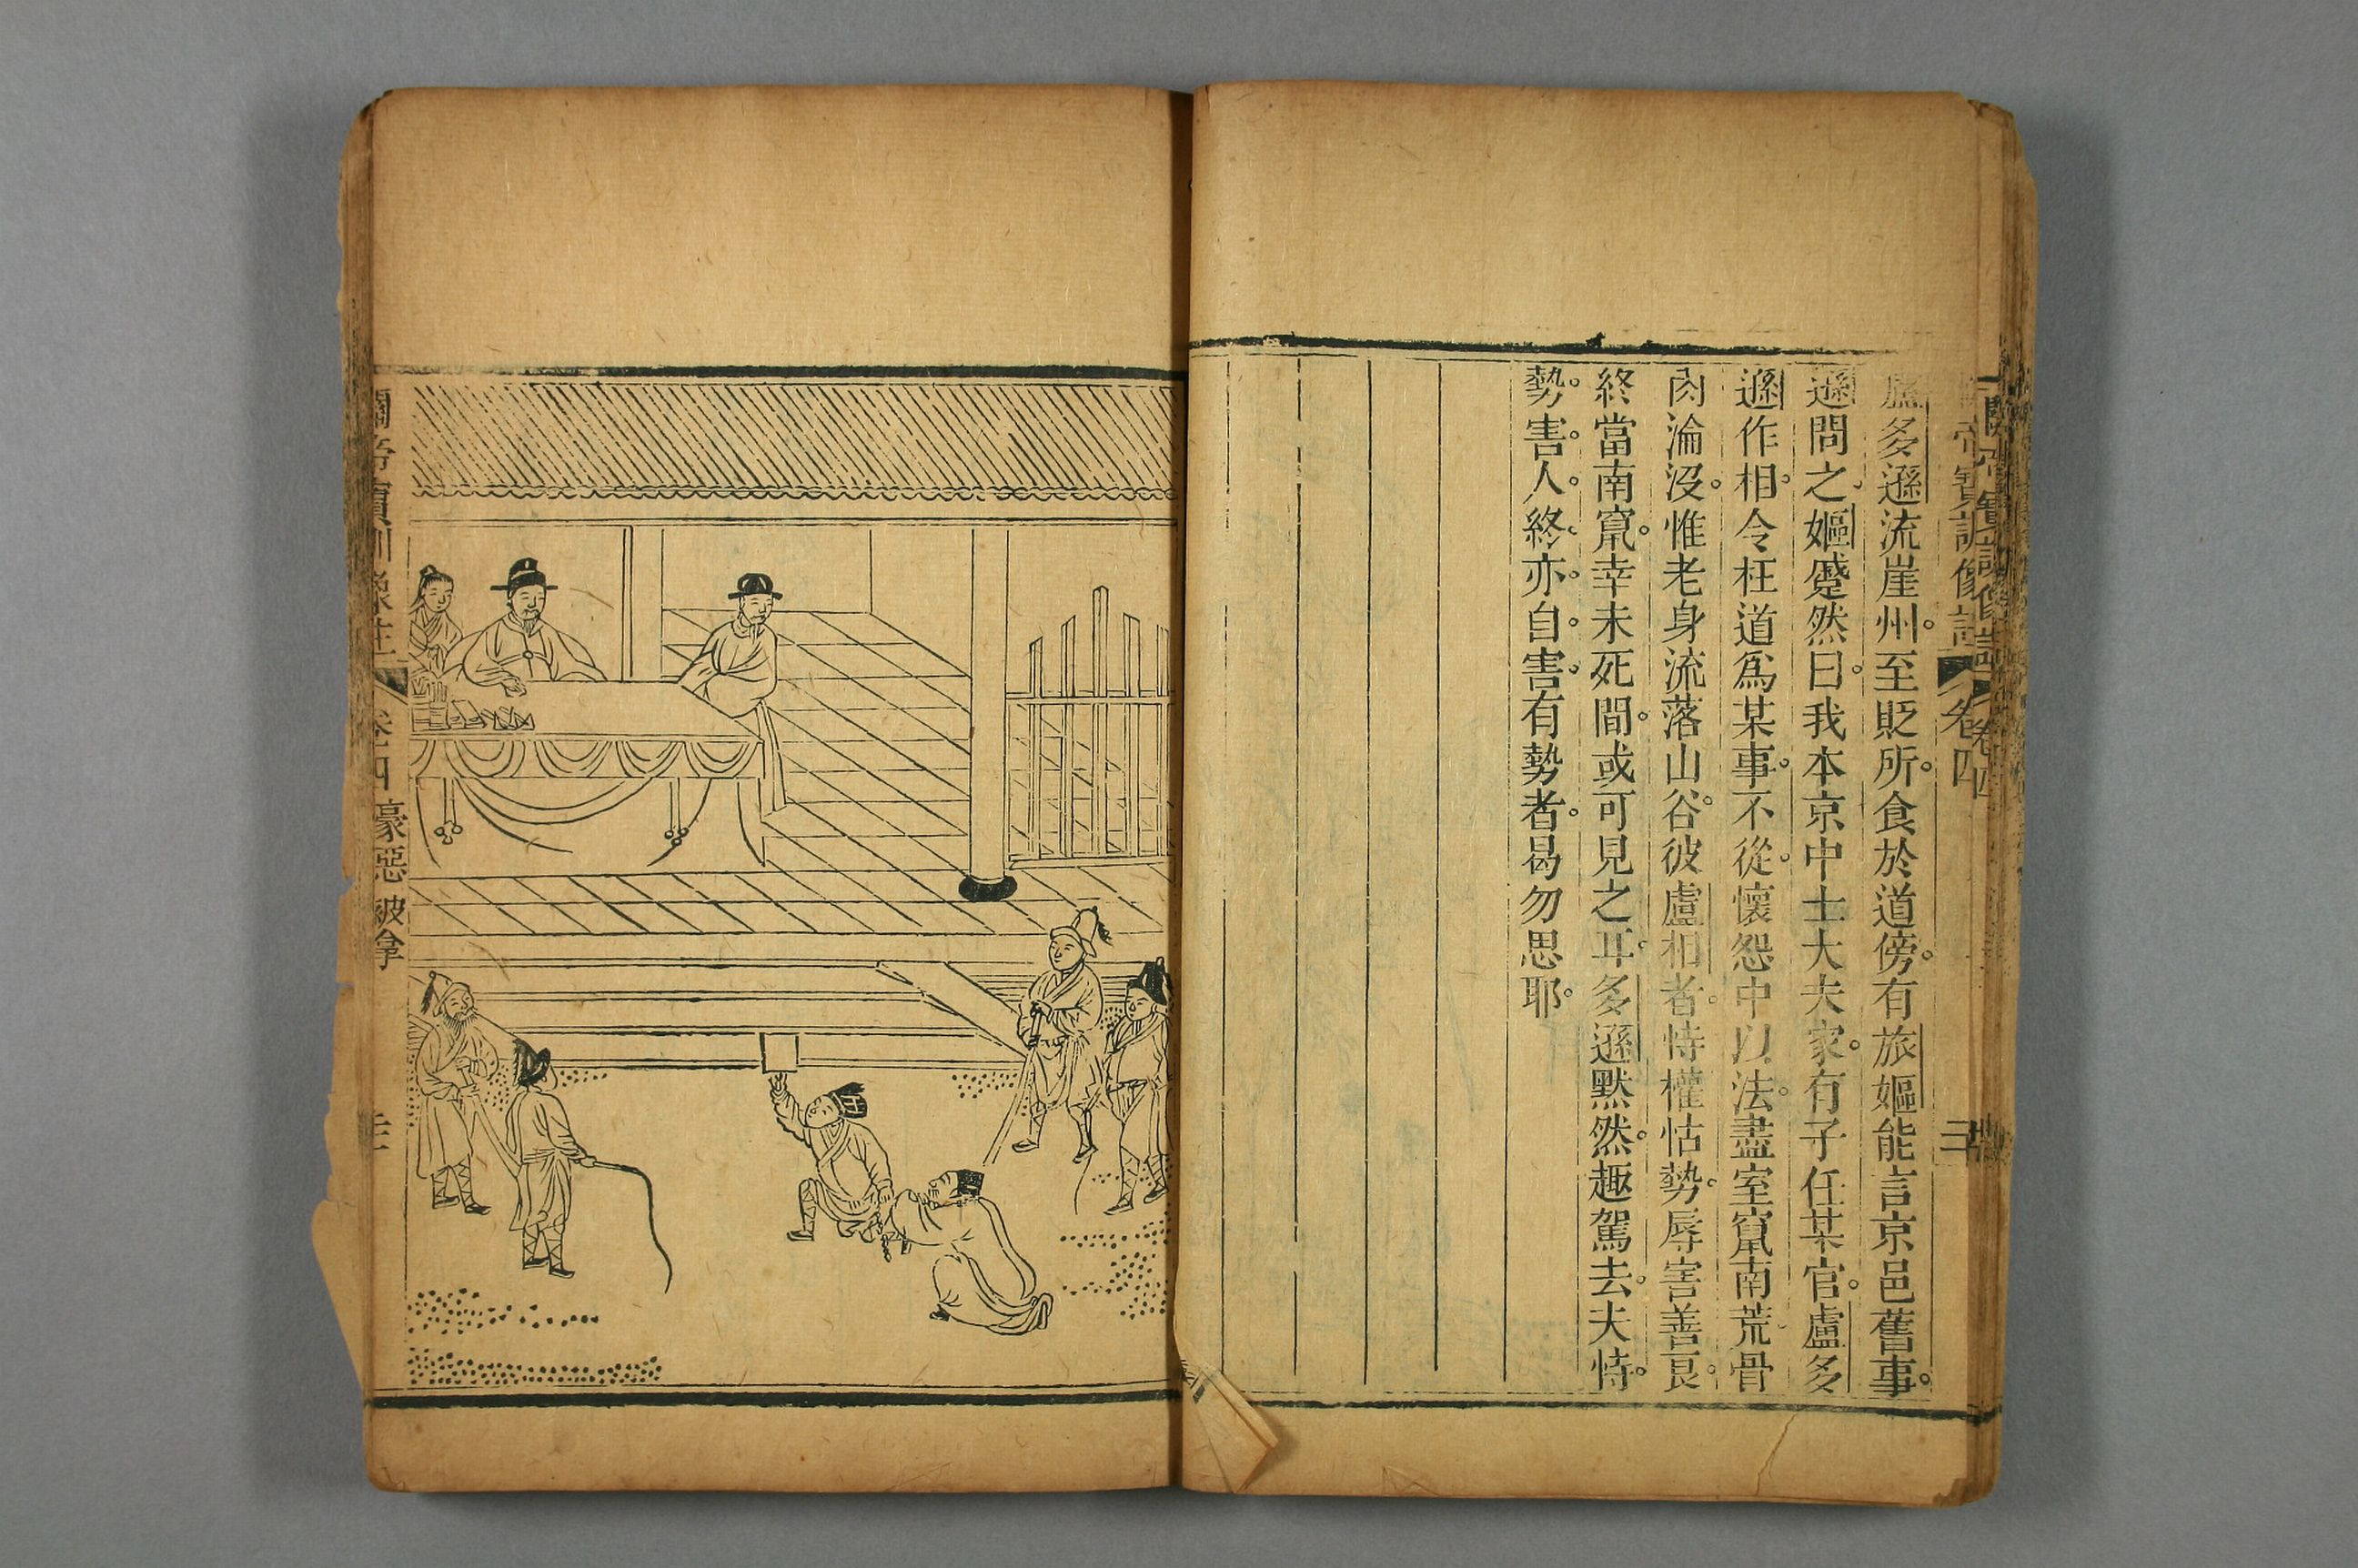 關帝寶訓像註 卷四
三
盧多遜流崖州。至貶所。食於道傍。有旅嫗能言京邑舊事。
遜問之。嫗蹙然曰。我本京中士大夫家。有子任某官。盧多
遜作相。令枉道爲某事。不從。懷怨中以法。盡室竄南荒。骨
肉淪没。惟老身流落山谷。彼盧相者。恃權怙勢。辱害善良。
終當南竄。幸未死間。或可見之耳。多遜黙然。趣駕去。夫恃。
勢。害。人。終。亦。自。害。有勢者。曷勿思耶。
關帝寶訓像註 卷四 豪惡被拿